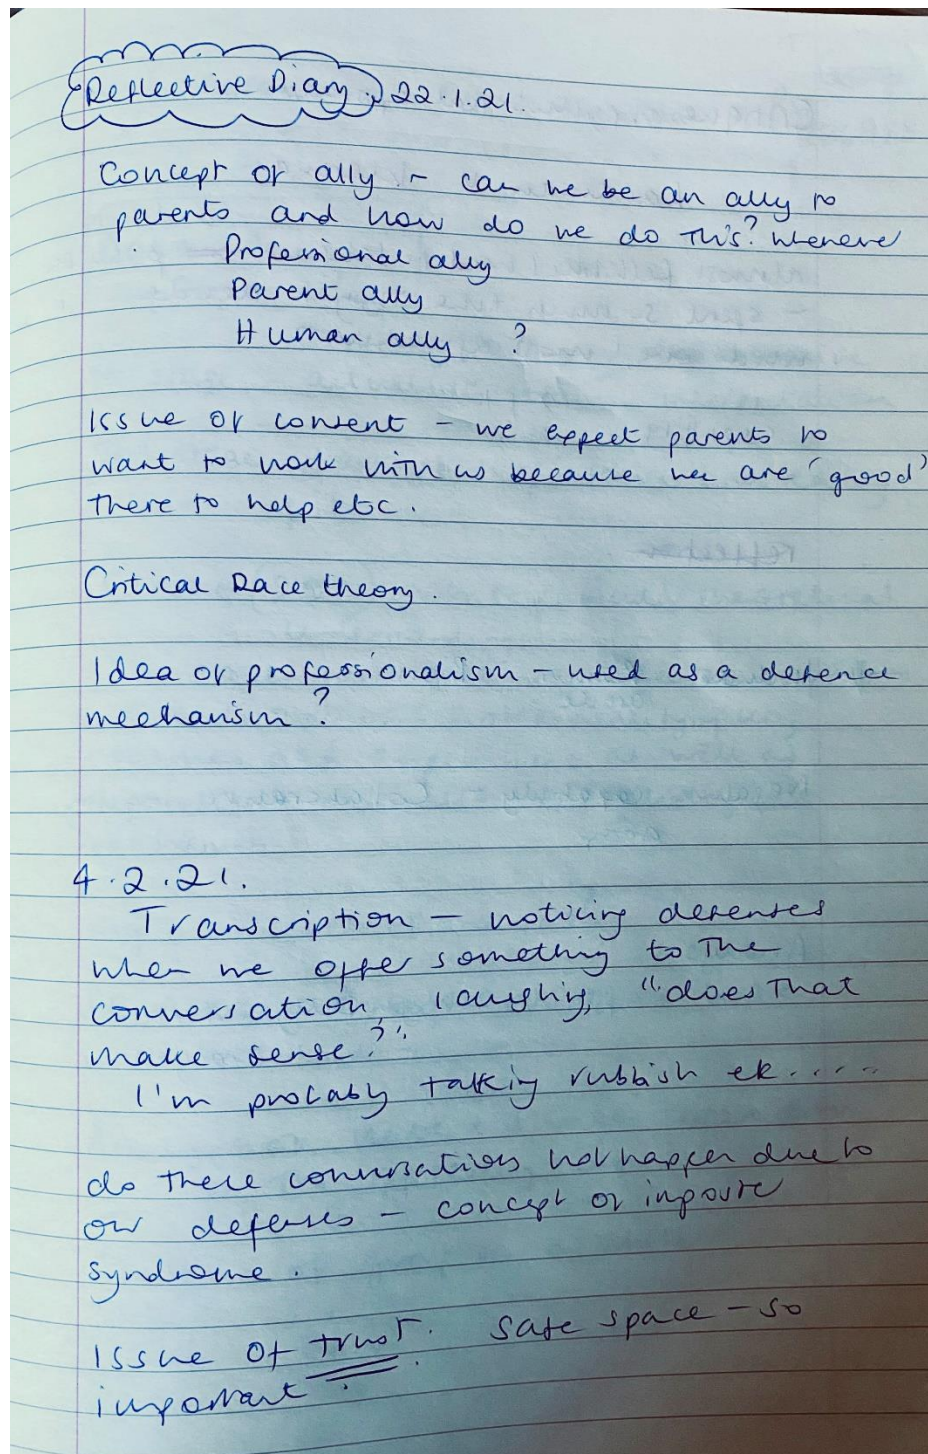 Reflective Diary. 22.1.21.
Concept of ally - can we be an ally to
parents and how do we do this?
Professional ally
Parent ally
Human ally ?
Issue of consent - we expect parents to
want to work with us because we are 'good'
there to help etc.
Critical Race theory.
Idea of professionalism - used as a defence
mechanism?
4.2.21.
Transcription - noticing defenses
when we offer something to the
conversation, laughing, "does that
make sense?"
I'm probably talking rubbish etc.....
do these conversations not happen due to
our defenses - concept of
syndrome.
Issue of trust. Safe space - so
important.
reflection